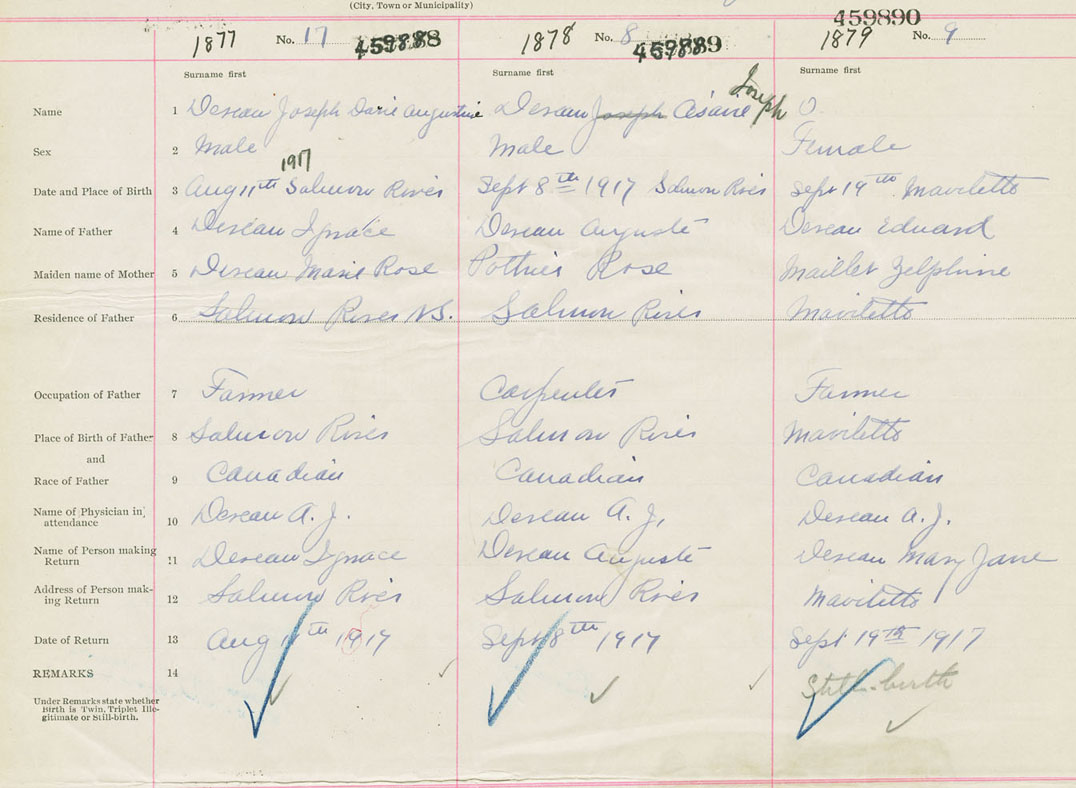 (City, Town or Municipality)
1877 No. 17 459888 1878 No. 8 459889 1879 No. 9 459890
Surname first Surname first Surname first
Name 1 Deveau Joseph Davie Augustine Deveau Joseph Césaire Joseph O.
Sex 2 Male Male Female
1917
Date and Place of Birth 3 Aug 11th Salmon River Sept 8th 1917 Salmon River Sept 19th Mavilette
Name of Father 4 Deveau Ignace Deveau Auguste Deveau Edward
Maiden name of Mother 5 Deveau Marie Rose Pothier Rose Maillet Zelphine
Residence of Father 6 Salmon River N.S. Salmon River Mavilette
Occupation of Father 7 Farmer Carpenter Farmer
Place of Birth of Father 8 Salmon River Salmon River Mavilette
and
Race of Father 9 Canadian Canadian Canadian
Name of Physician in attendance 10 Deveau A. J. Deveau A. J. Deveau A. J.
Name of Person making Return 11 Deveau Ignace Deveau Auguste Deveau Mary Jane
Address of Person mak-ing Return 12 Salmon River Salmon River Mavilette
Date of Return 13 Aug 11th 1917 Sept 8th 1917 Sept 19th 1917
REMARKS 14 Still-birth
Under Remarks state whether
Birth is Twin, Triplet Ille-
gitimate or Still-birth.